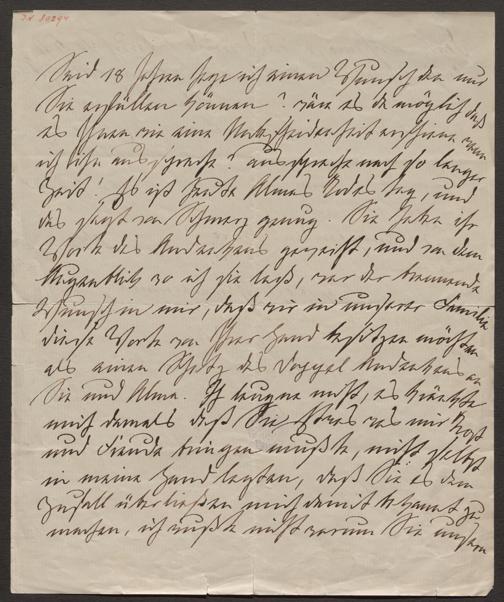 IN 80294
Seid 18 Jahren hege ich einen Wunsch den nur
Sie erfüllen können? wäre es da möglich daß
es Ihnen wie eine Unbescheidenheit erschiene wenn
ich ihn ausspreche? ausspreche nach so langer
Zeit! Es ist heute Almas Todes tag, und
das sagt von Schmerz genug. Sie haben ihr
Worte des Andenkens geweiht, und von dem
Augenblick wo ich sie laß, war der brennende
Wunsch in mir, daß wir in unserer Familie
diese Worte von Ihrer Hand besitzen möchten
als einen Schatz des Doppel Andenkens an
Sie und Alma. Ich leugne nicht, es kränkte
mich damals daß Sie etwas was mir Trost
und Freude bringen mußte, nicht selbst
in meine Hand legten, daß Sie es dem
Zufall überließen mich damit bekannt zu
machen, ich wußte nicht warum Sie unsern